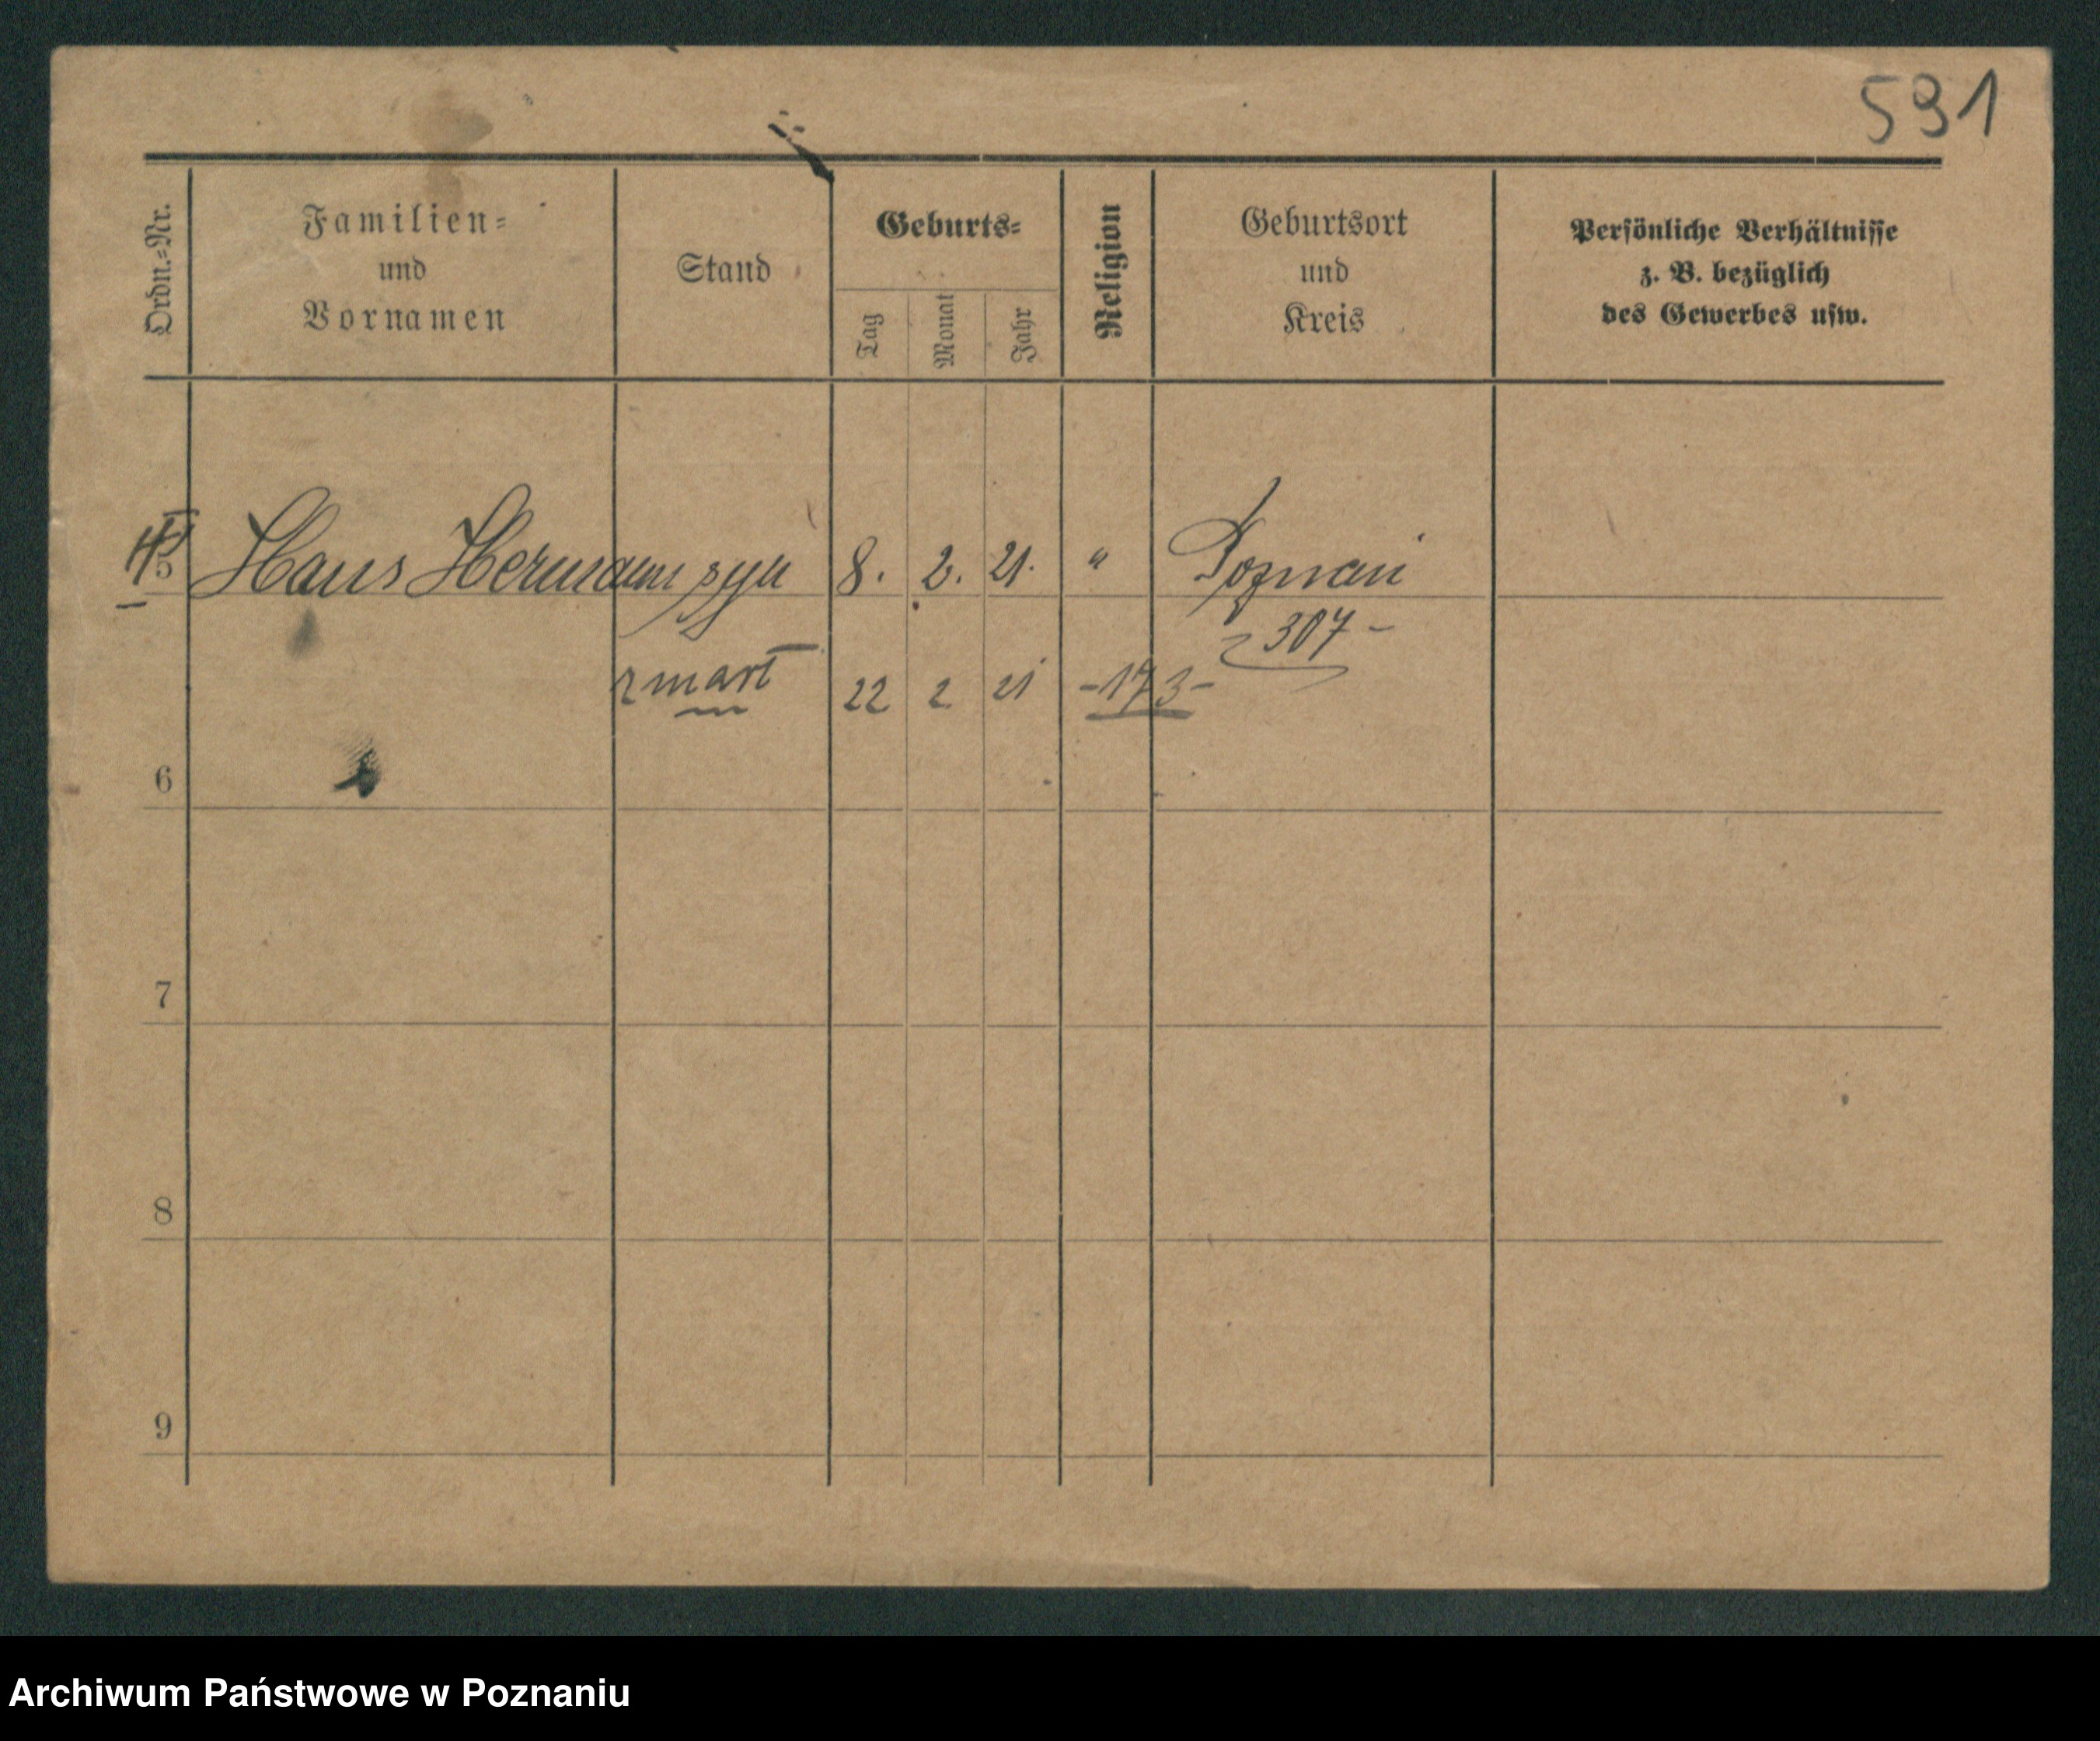 591
Ordn.-Nr.
Familien-
und
Vornamen
Stand
Geburts-
Tag
Monat
Jahr
Religion
Geburtsort
und
Kreis
Persönliche Verhältnisse
z. B. bezüglich
des Gewerbes usw.
5 Hans Hermann syn 8. 2. 21. " Poznań
307-
zmarł 22 2 21 -173-
6
7
8
9
Archiwum Państwowe w Poznaniu